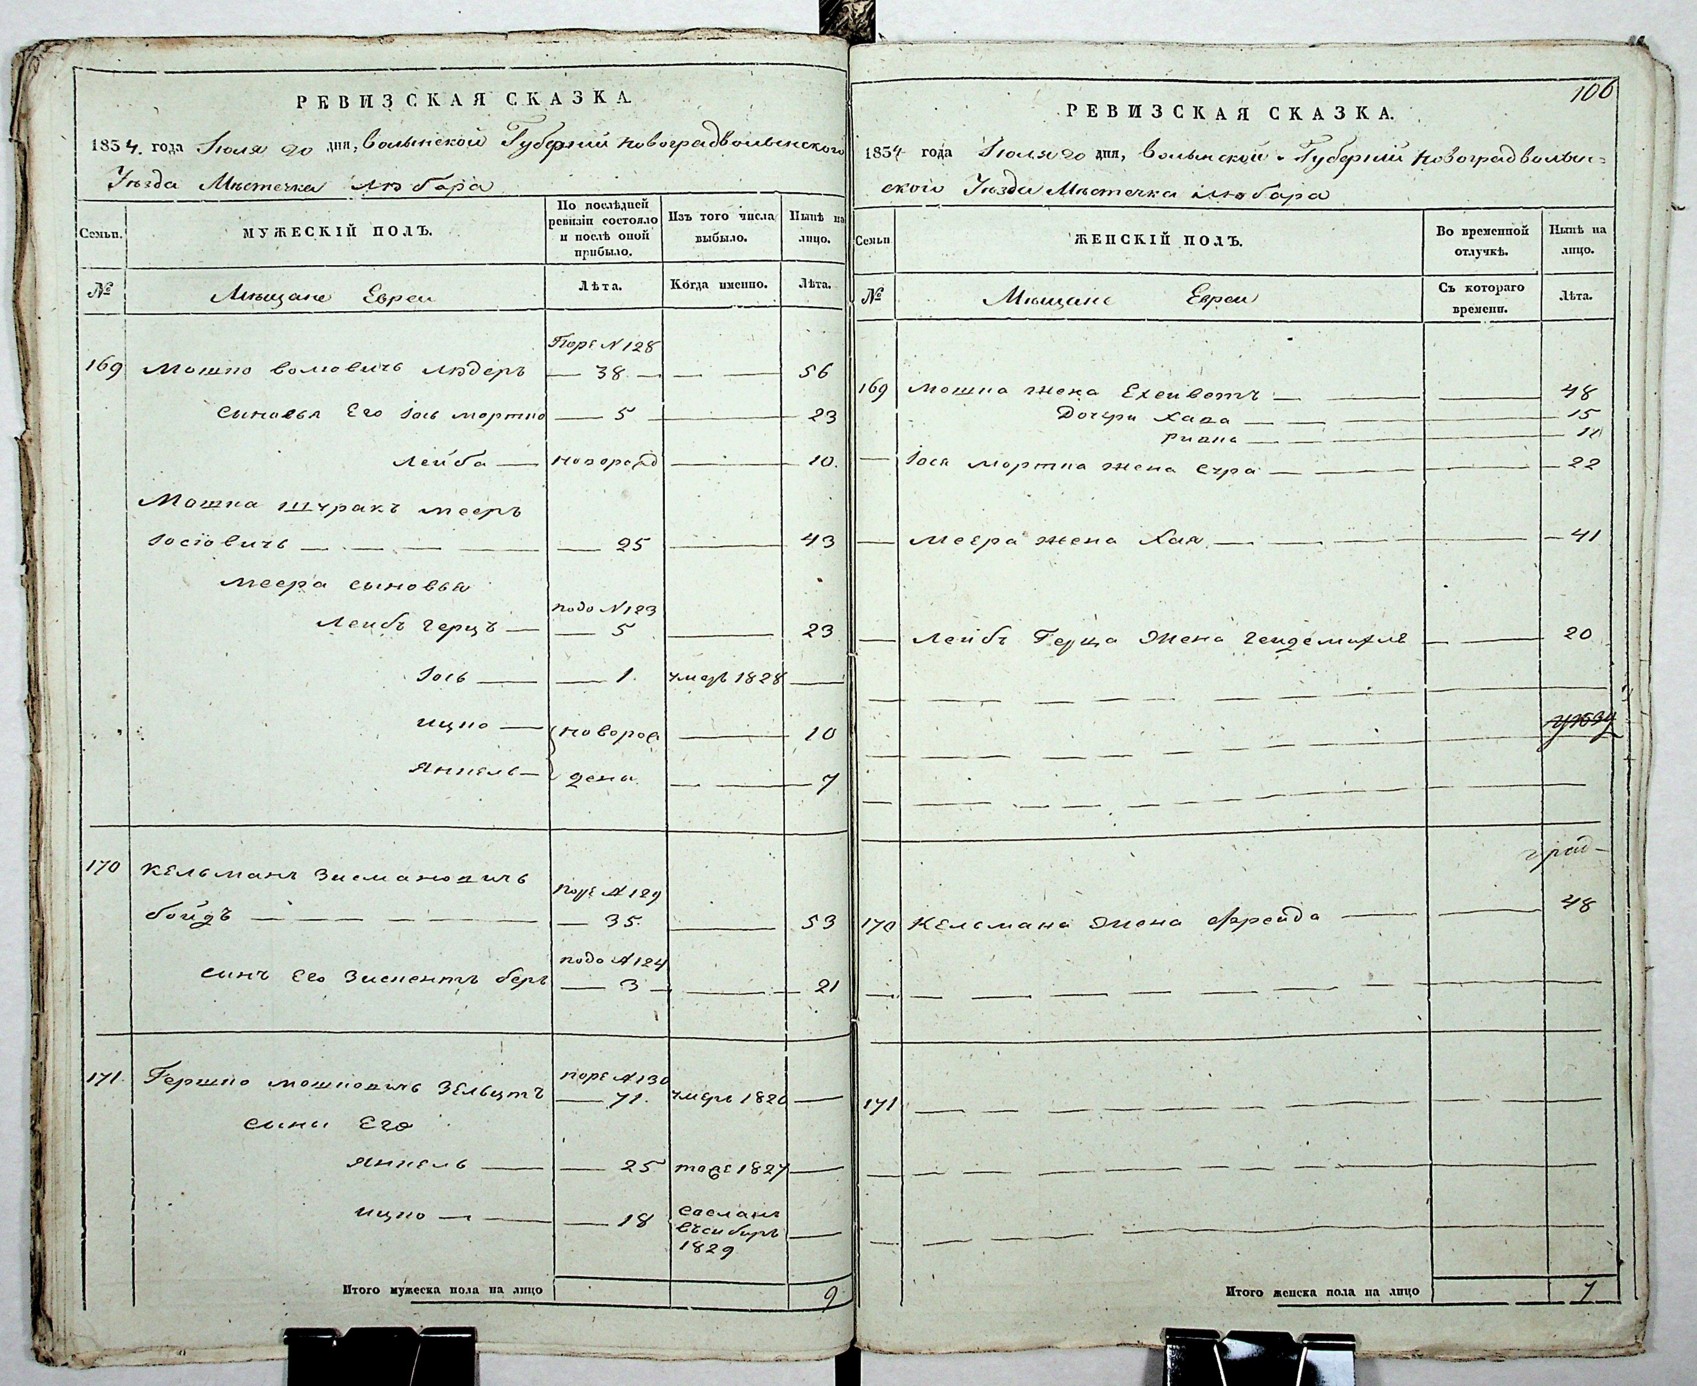 РЕВИЗСКАЯ СКАЗКА.
1834. года Іюля 20 дня, Волынской Губерніи Новоградволынского
Уѣзда Мѣстечка Любара
Семьи.
МУЖЕСКІЙ ПОЛЪ.
По послѣдней ревизіи состояло и послѣ оной прибыло.
Изъ того числа выбыло.
Нынѣ на лицо.
№
Мѣщане Евреи
Лѣта.
Когда именно.
Лѣта.
По ре №128
169 Мошко Волковичъ 38 56
Сыновья Его Іось Мортко 5 23
Лейба новорожд 10.
Мошка Шчракъ Мееръ
Іосіовичъ 25 43
Меера сыновья
подо №123
Лейбъ Герцъ 5 23
Іось 1. умеръ 1828
Ицко новорож 10
Янкель дены 7
170 Кельманъ Зисмановичъ
поре №129
Бойдъ 35. 53
подо №124
сынъ Его Беръ 3 21
поре №130
171. Гершко Мошковичъ Зельцтъ 71. умеръ 1820
сыны Его
Янкель 25 тоже 1827
Ицко 18 сосланъ
въ сибирь
1829
Итого мужеска пола на лицо 9
106
РЕВИЗСКАЯ СКАЗКА.
1834 года Іюля 20 дня, Волынской Губерніи Новоградволын=
ского Уѣзда Мѣстечка Любара
Семьи
ЖЕНСКІЙ ПОЛЪ.
Во временной отлучкѣ.
Нынѣ на лицо.
№
Мѣщане Евреи
Съ котораго времени.
Лѣта.
169 Мошка жена 48
Дочери Хава 15
Ривка
Іося Мортка жена Сура 22
Меера жена Хая 41
Лейбъ Герца жена 20
170 Кельмана жена Фрейда 48
171
Итого женска пола на лицо 7